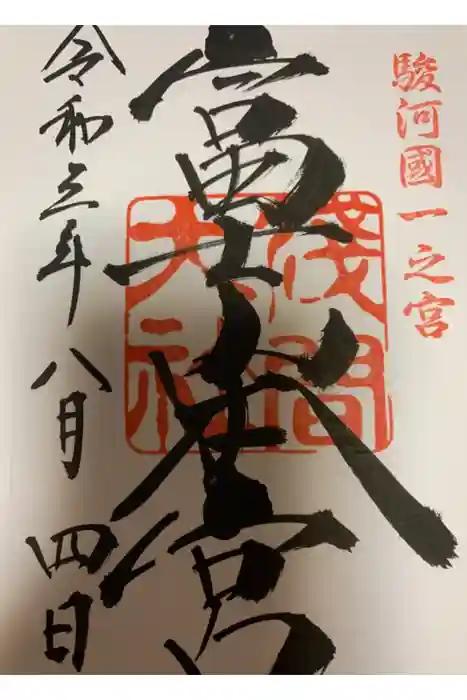 駿河國一之宮
富士本宮
浅間
大社
令和三年八月四日